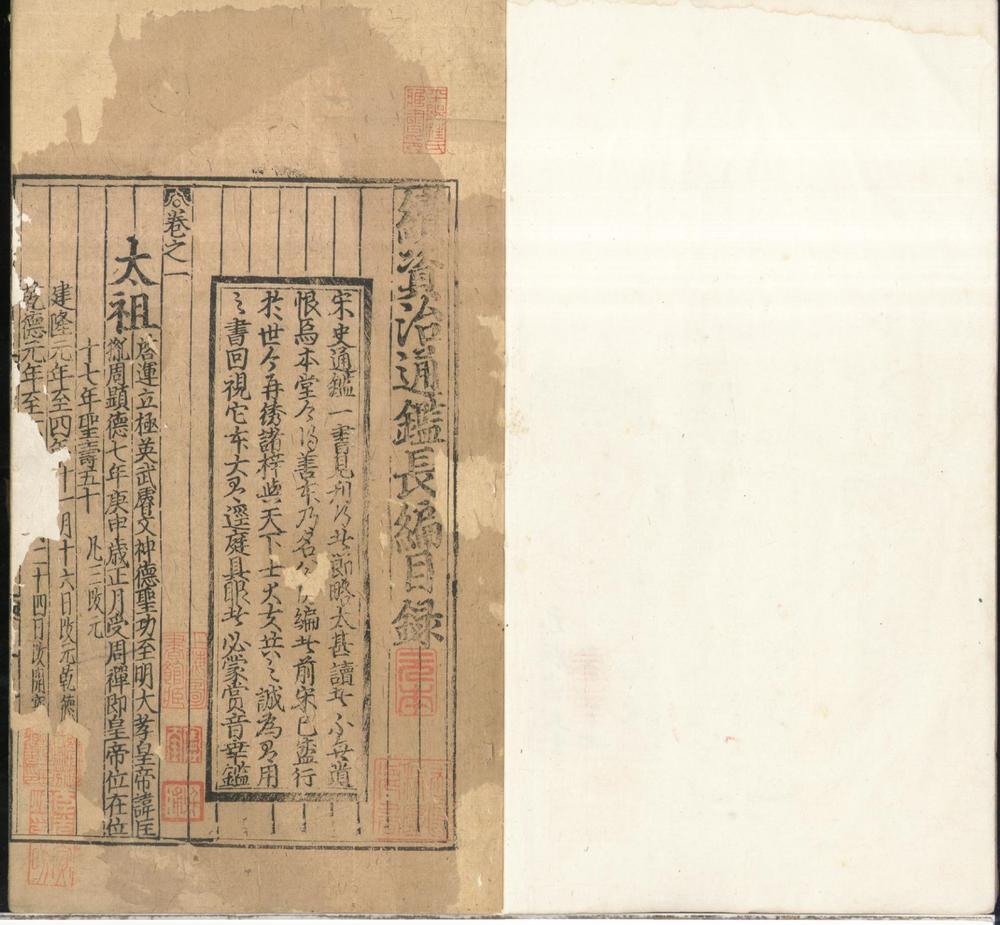 續資治通鑑長編目録
宋史通鑑一書見刊行者節略太甚讀者不無遺
恨焉本堂今得善本乃名公所編者前宋已盛行
於世今再繡諸梓與天下士大夫共之誠為有用
之書回視它本大有逕庭具眼者必蒙賞音幸鑑
卷之一
太祖
啓運立極英武睿文神德聖功至明大孝皇帝諱匡
胤周顯德七年庚申歲正月受周禪即皇帝位在位
十七年聖壽五十 凡三改元
建隆元年至四年十一月十六日改元乾德
乾德元年至 二十四日改開寶
元本